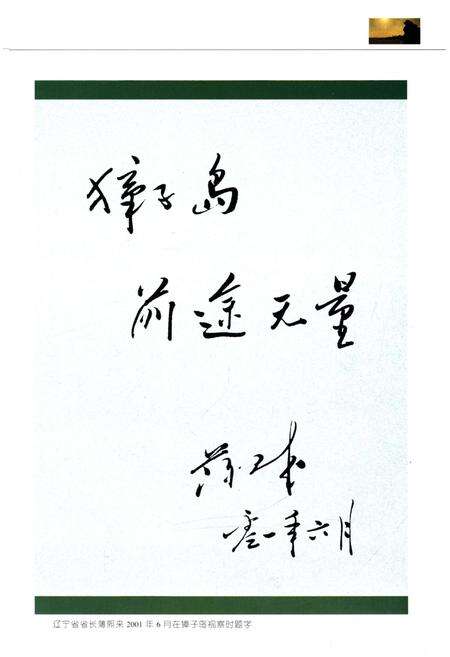 獐子岛
前途无量
薄熙来
零一年六月
辽宁省省长薄熙来 2001 年 6 月在獐子岛视察时题字